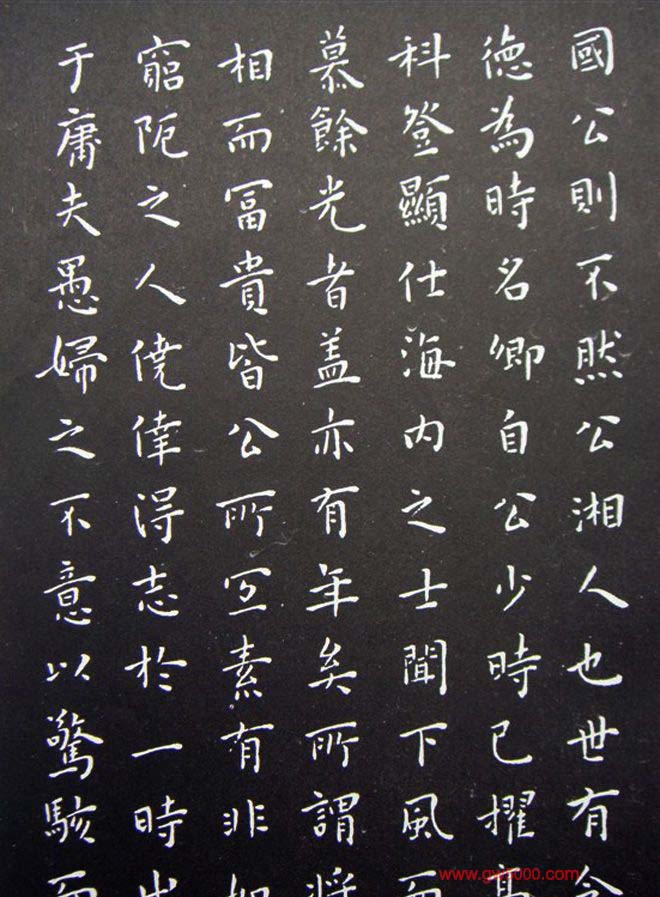 國公則不然公湘人也世有令
德為時名卿自公少時已擢高
科登顯仕海內之士聞下風而
慕餘光者盖亦有年矣所謂將
相而冨貴皆公所冝素有非如
窮阨之人僥倖得志於一時出
于庸夫愚婦之不意以驚駭而